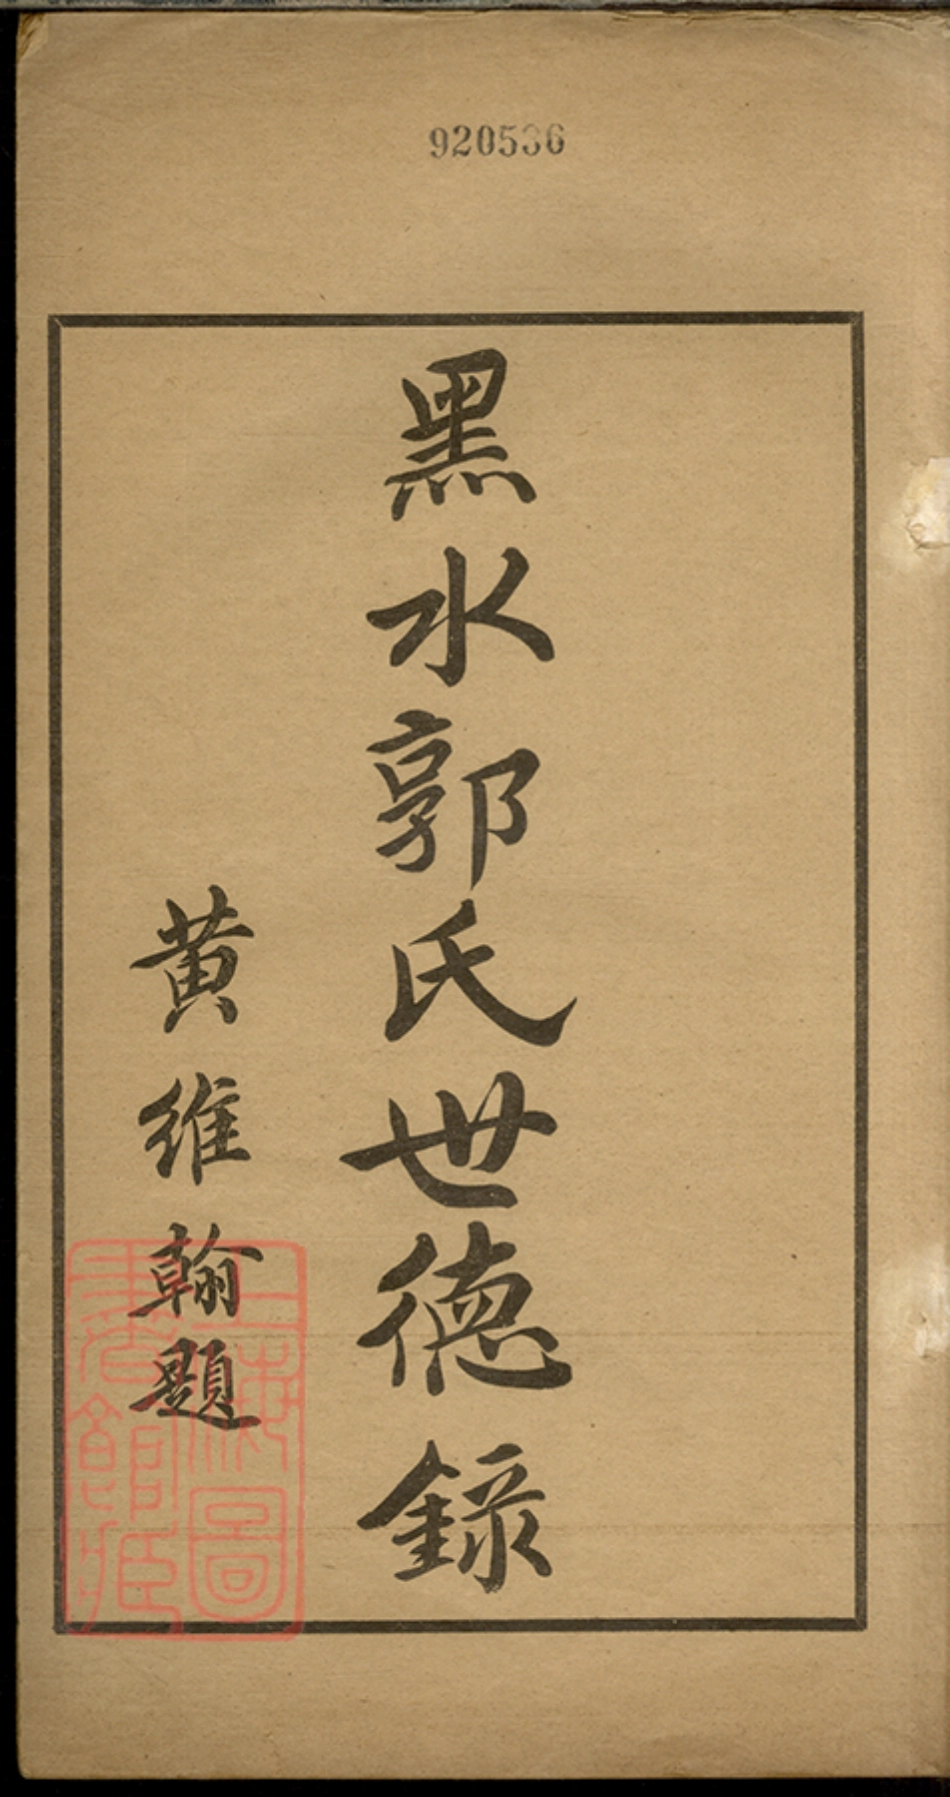 920536
黑水郭氏世德錄
黃維翰題
上海圖
書館藏